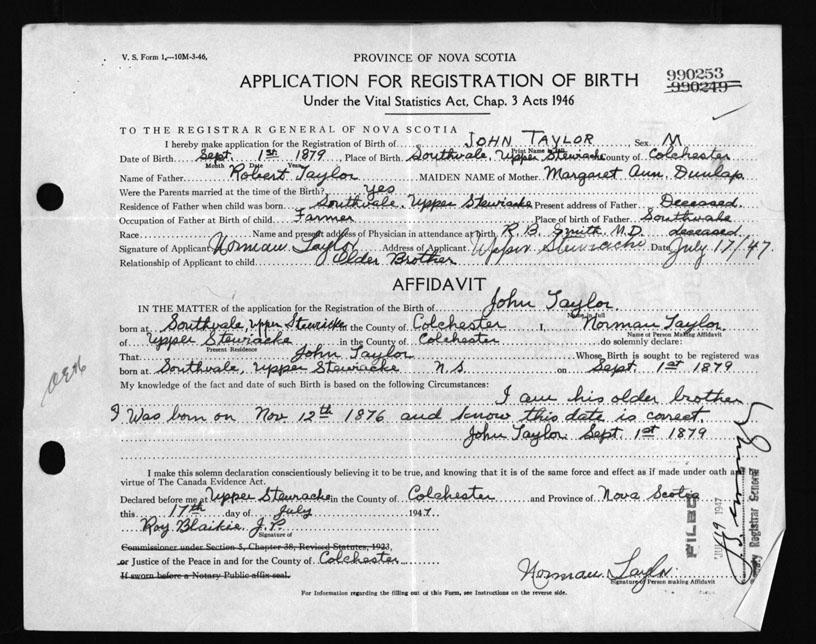 V. S. Form 1,—10M-3-46,
PROVINCE OF NOVA SCOTIA
990253
990249
APPLICATION FOR REGISTRATION OF BIRTH
Under the Vital Statistics Act, Chap. 3 Acts 1946
TO THE REGISTRAR GENERAL OF NOVA SCOTIA
I hereby make application for the Registration of Birth of JOHN TAYLOR, Sex M
Print Name in full
Date of Birth Sept. 1st 1879, Place of Birth Southvale, Upper Stewiacke County of Colchester
Month Date Year
Name of Father Robert Taylor MAIDEN NAME of Mother Margaret Ann. Dunlap.
Were the Parents married at the time of the Birth? Yes
Residence of Father when child was born Southvale, Upper Stewiacke Present address of Father Deceased
Occupation of Father at Birth of child Farmer Place of birth of Father Southvale
Race Name and present address of Physician in attendance at birth R. B. Smith. M.D. deceased
Signature of Applicant Norman Taylor Address of Applicant Upper Stewiacke Date July 17/47.
Relationship of Applicant to child Older Brother
AFFIDAVIT
IN THE MATTER of the application for the Registration of the Birth of John Taylor.
Name in full
born at Southvale, Upper Stewiacke in the County of Colchester I, Norman Taylor
Name of Person Making Affidavit
of Upper Stewiacke in the County of Colchester do solemnly declare:
Present Residence
That John Taylor Whose Birth is sought to be registered was
born at Southvale, Upper Stewiacke N.S. on Sept. 1st 1879
My knowledge of the fact and date of such Birth is based on the following Circumstances:
I am his older brother
I Was born on Nov. 12th 1876 and know this date is correct.
John Taylor Sept. 1st 1879
I make this solemn declaration conscientiously believing it to be true, and knowing that it is of the same force and effect as if made under oath and by
virtue of The Canada Evidence Act.
Declared before me at Upper Stewiacke in the County of Colchester and Province of Nova Scotia
this 17th day of July 1947
Roy Blaikie J.P.
Signature of
Commissioner under Section 5, Chapter 38, Revised Statutes, 1923,
or Justice of the Peace in and for the County of Colchester
If sworn before a Notary Public affix seal.
Norman Taylor
Signature of Person making Affidavit
For Information regarding the filling out of this Form, see Instructions on the reverse side.
FILED
1947
Registrar General